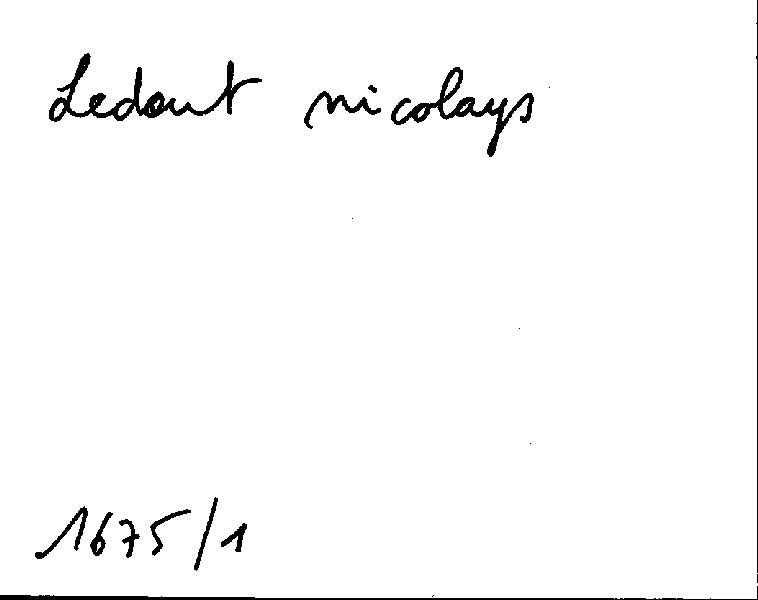 Ledout nicolays
1675/1